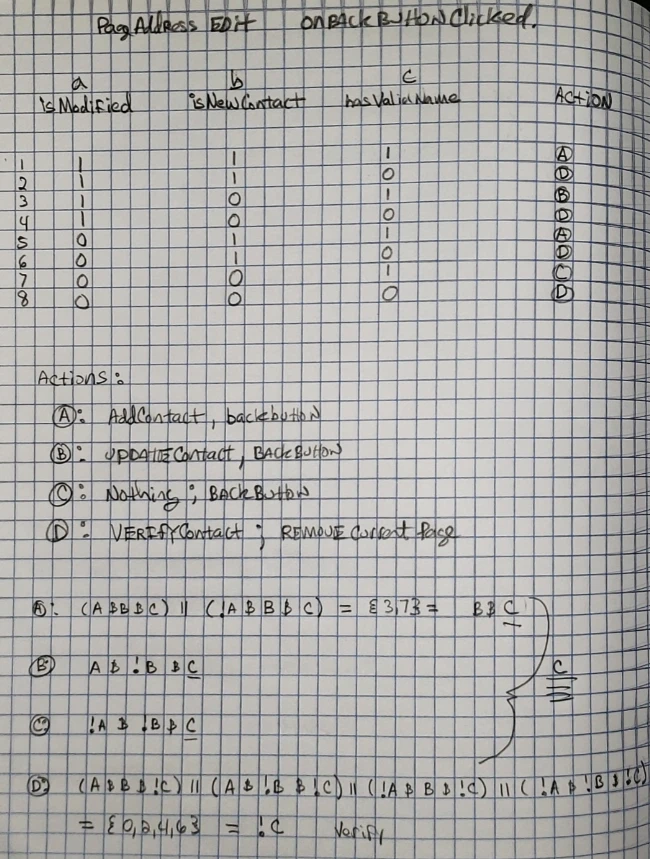 Pag Address Edit onBackButtonClicked.
a b c
isModified isNewContact hasValidName Action
1 1 1 1 A
2 1 1 0 D
3 1 0 1 B
4 1 0 0 D
5 0 1 1 A
6 0 1 0 D
7 0 0 1 C
8 0 0 0 D
Actions:
A: AddContact, backbutton
B: UPDATE Contact, BackButton
C: Nothing; BackButton
D: VERIFYContact; REMOVE Current Page
A: (A & B & C) || (!A & B & C) = {3,7} = B & C
B: A & !B & C
C
C !A & !B & C
D: (A & B & !C) || (A & !B & !C) || (!A & B & !C) || (!A & !B & !C)
= {0,2,4,6} = !C Verify